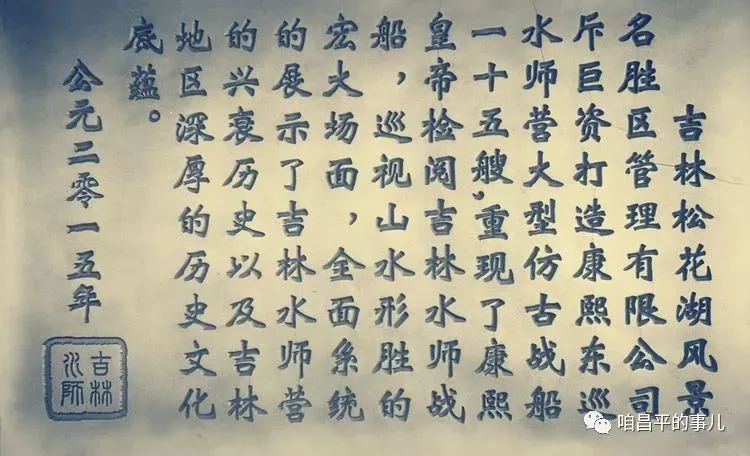 吉林松花湖风景
名胜区管理有限公司
斥巨资打造康熙东巡
水师营大型仿古战船
一十五艘，重现了康熙
皇帝检阅吉林水师战
船，巡视山水形胜的
宏大场面，全面系统
的展示了吉林水师营
的兴衰历史以及吉林
地区深厚的历史文化
底蕴。
公元二零一五年
吉林水师
咱昌平的事儿